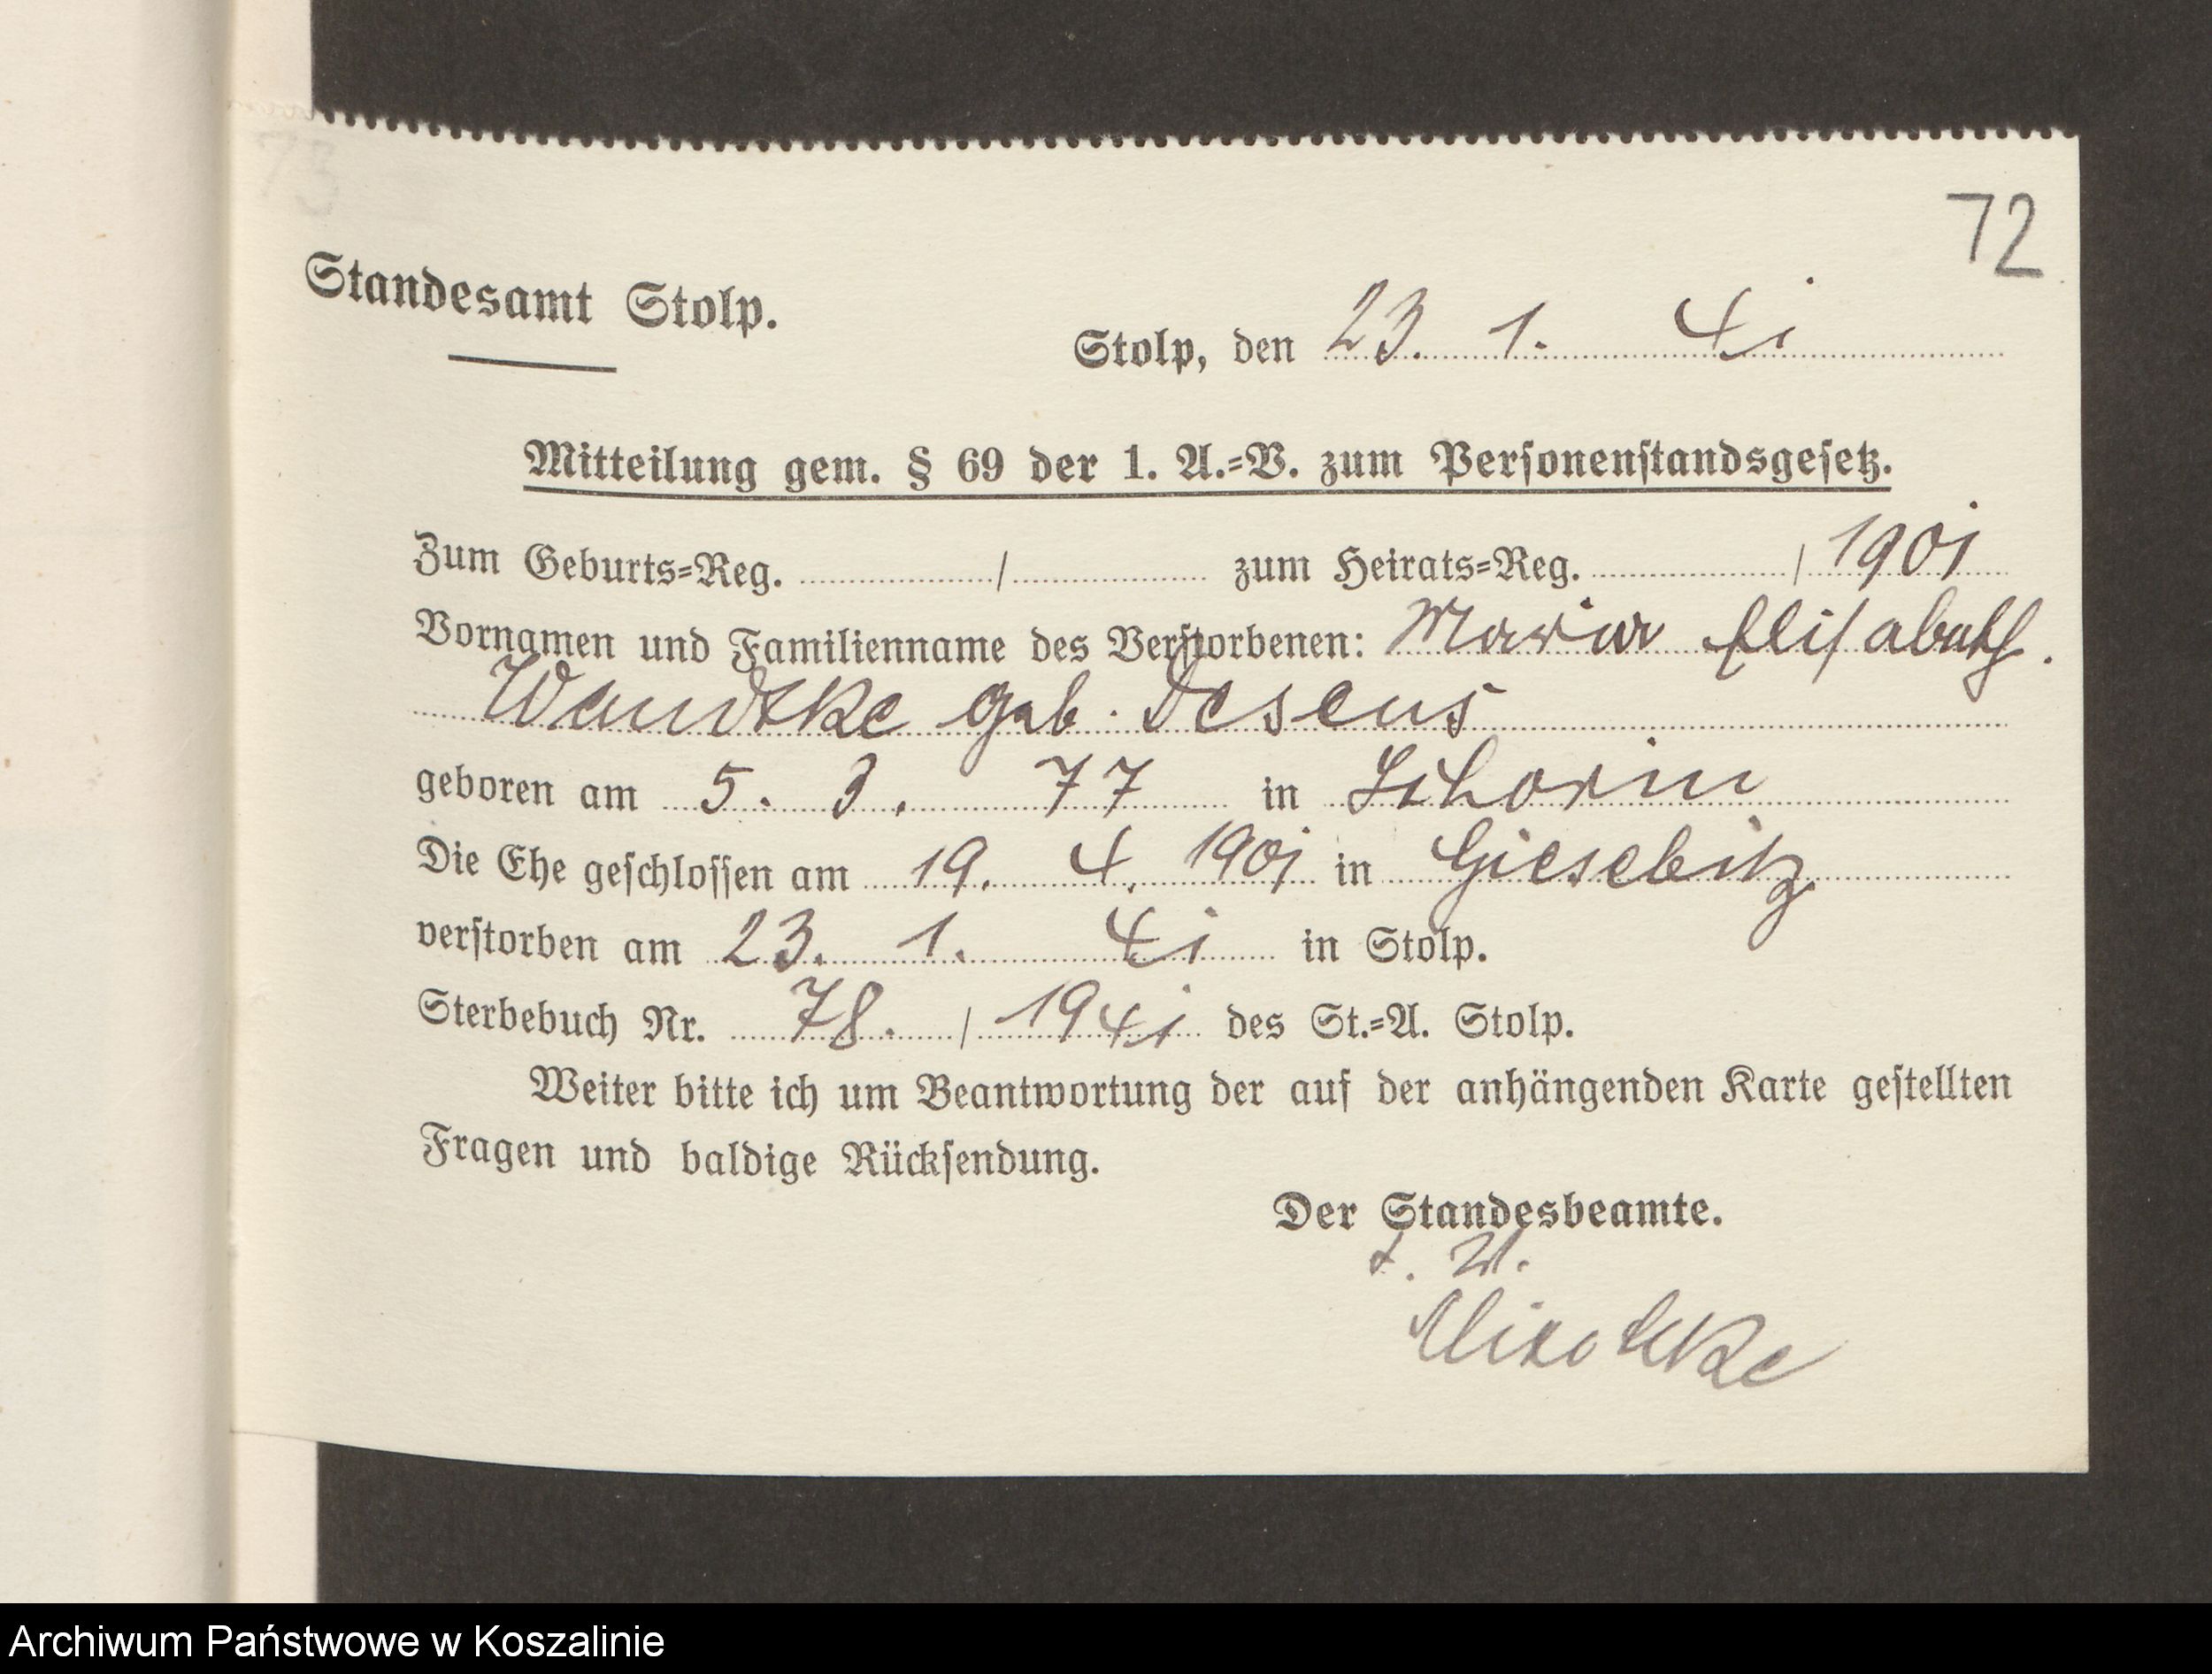 72
Standesamt Stolp.
Stolp, den 23. 1. 41
Mitteilung gem. § 69 der 1. A.-V. zum Personenstandsgesetz.
Zum Geburts-Reg. / zum Heirats-Reg. / 1901
Vornamen und Familienname des Verstorbenen: Maria Elisabeth
Wandtke geb. Deseus
geboren am 5. 3. 77 in Schorin
Die Ehe geschlossen am 19. 4. 1901 in Giesebitz
verstorben am 23. 1. 41 in Stolp.
Sterbebuch Nr. 78. / 1941 des St.-A. Stolp.
Weiter bitte ich um Beantwortung der auf der anhängenden Karte gestellten
Fragen und baldige Rücksendung.
Der Standesbeamte.
Archiwum Państwowe w Koszalinie